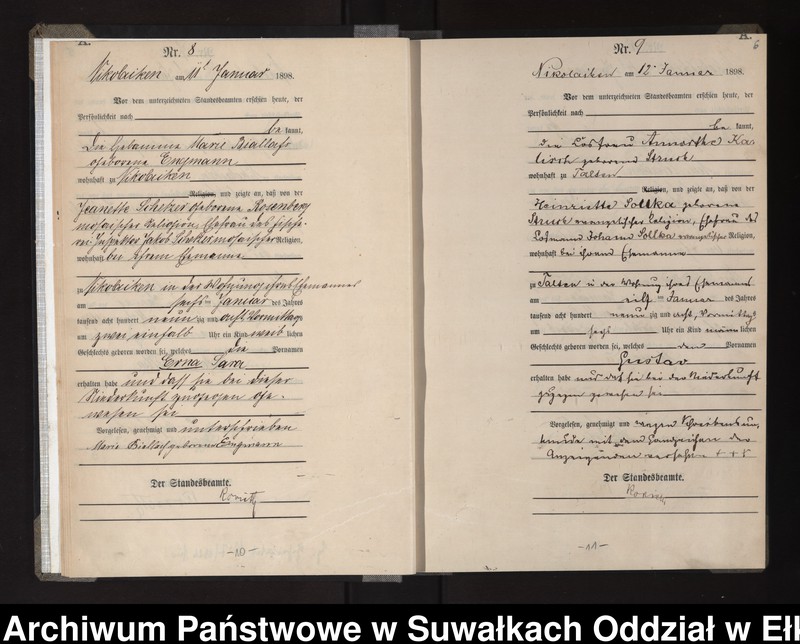 A.
Nr. 8
Nikolaiken am 11 Januar 1898.
Vor dem unterzeichneten Standesbeamten erschien heute, der
Persönlichkeit nach
be kannt,
die Hebamme Marie Biallass
geborene Engmann
wohnhaft zu Nikolaiken
Religion, und zeigte an, daß von der
Jeanette Scheker geborene Rosenberg
mosaischer Religion Ehefrau des Fische-
rei Inspektor Jakob Scheker mosaischer Religion,
wohnhaft bei ihrem Ehemanne
zu Nikolaiken in der Wohnung ihres Ehemannes
am sechs Januar des Jahres
tausend acht hundert neun zig und acht Vormittags
um zwei einhalb Uhr ein Kind weib lichen
Geschlechts geboren worden sei, welches die Vornamen
Erna Sara
erhalten habe und daß sie bei dieser
Niederkunft zugegen ge-
wesen sei
Vorgelesen, genehmigt und unterschrieben
Marie Biallass geborene Engmann
Der Standesbeamte.
-10-
A.
6
Nr. 9
Nikolaiken am 12 Januar 1898.
Vor dem unterzeichneten Standesbeamten erschien heute, der
Persönlichkeit nach
be kannt,
die Losfrau Annorthe Ka-
geborene Struck
wohnhaft zu Talten
Religion, und zeigte an, daß von der
Heinriette Sollka geborene
Struck evangelischer Religion, Ehefrau des
Losmann Johann Sollka evangelischer Religion,
wohnhaft bei ihrem Ehemanne
zu Talten in der Wohnung ihres Ehemanns
am eilf ten Januar des Jahres
tausend acht hundert neun zig und acht, Vormittags
um sechs Uhr ein Kind männ lichen
Geschlechts geboren worden sei, welches den Vornamen
Gustav
erhalten habe und daß sie bei der Niederkunft
zugegen gewesen sei
Vorgelesen, genehmigt und wegen Schreibensun-
kunde mit dem Handzeichen der
Anzeigenden versehen + + +
Der Standesbeamte.
-11-
Archiwum Państwowe w Suwałkach Oddział w Eł